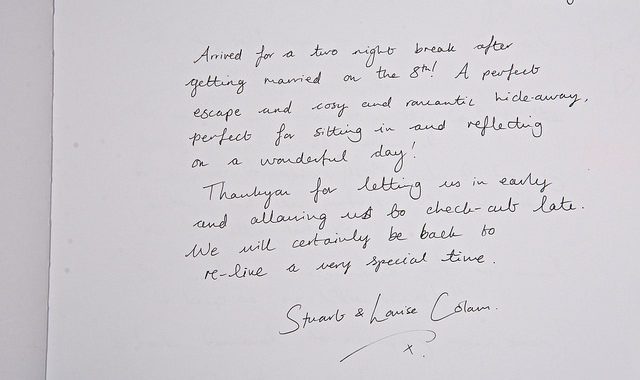 Arrived for a two night break after
getting married on the 8th! A perfect
escape and cosy and romantic hide-away,
perfect for sitting in and reflecting
on a wonderful day!
Thankyou for letting us in early
and allowing us to check-out late.
We will certainly be back to
re-live a very special time.
Stuart & Louise
x.